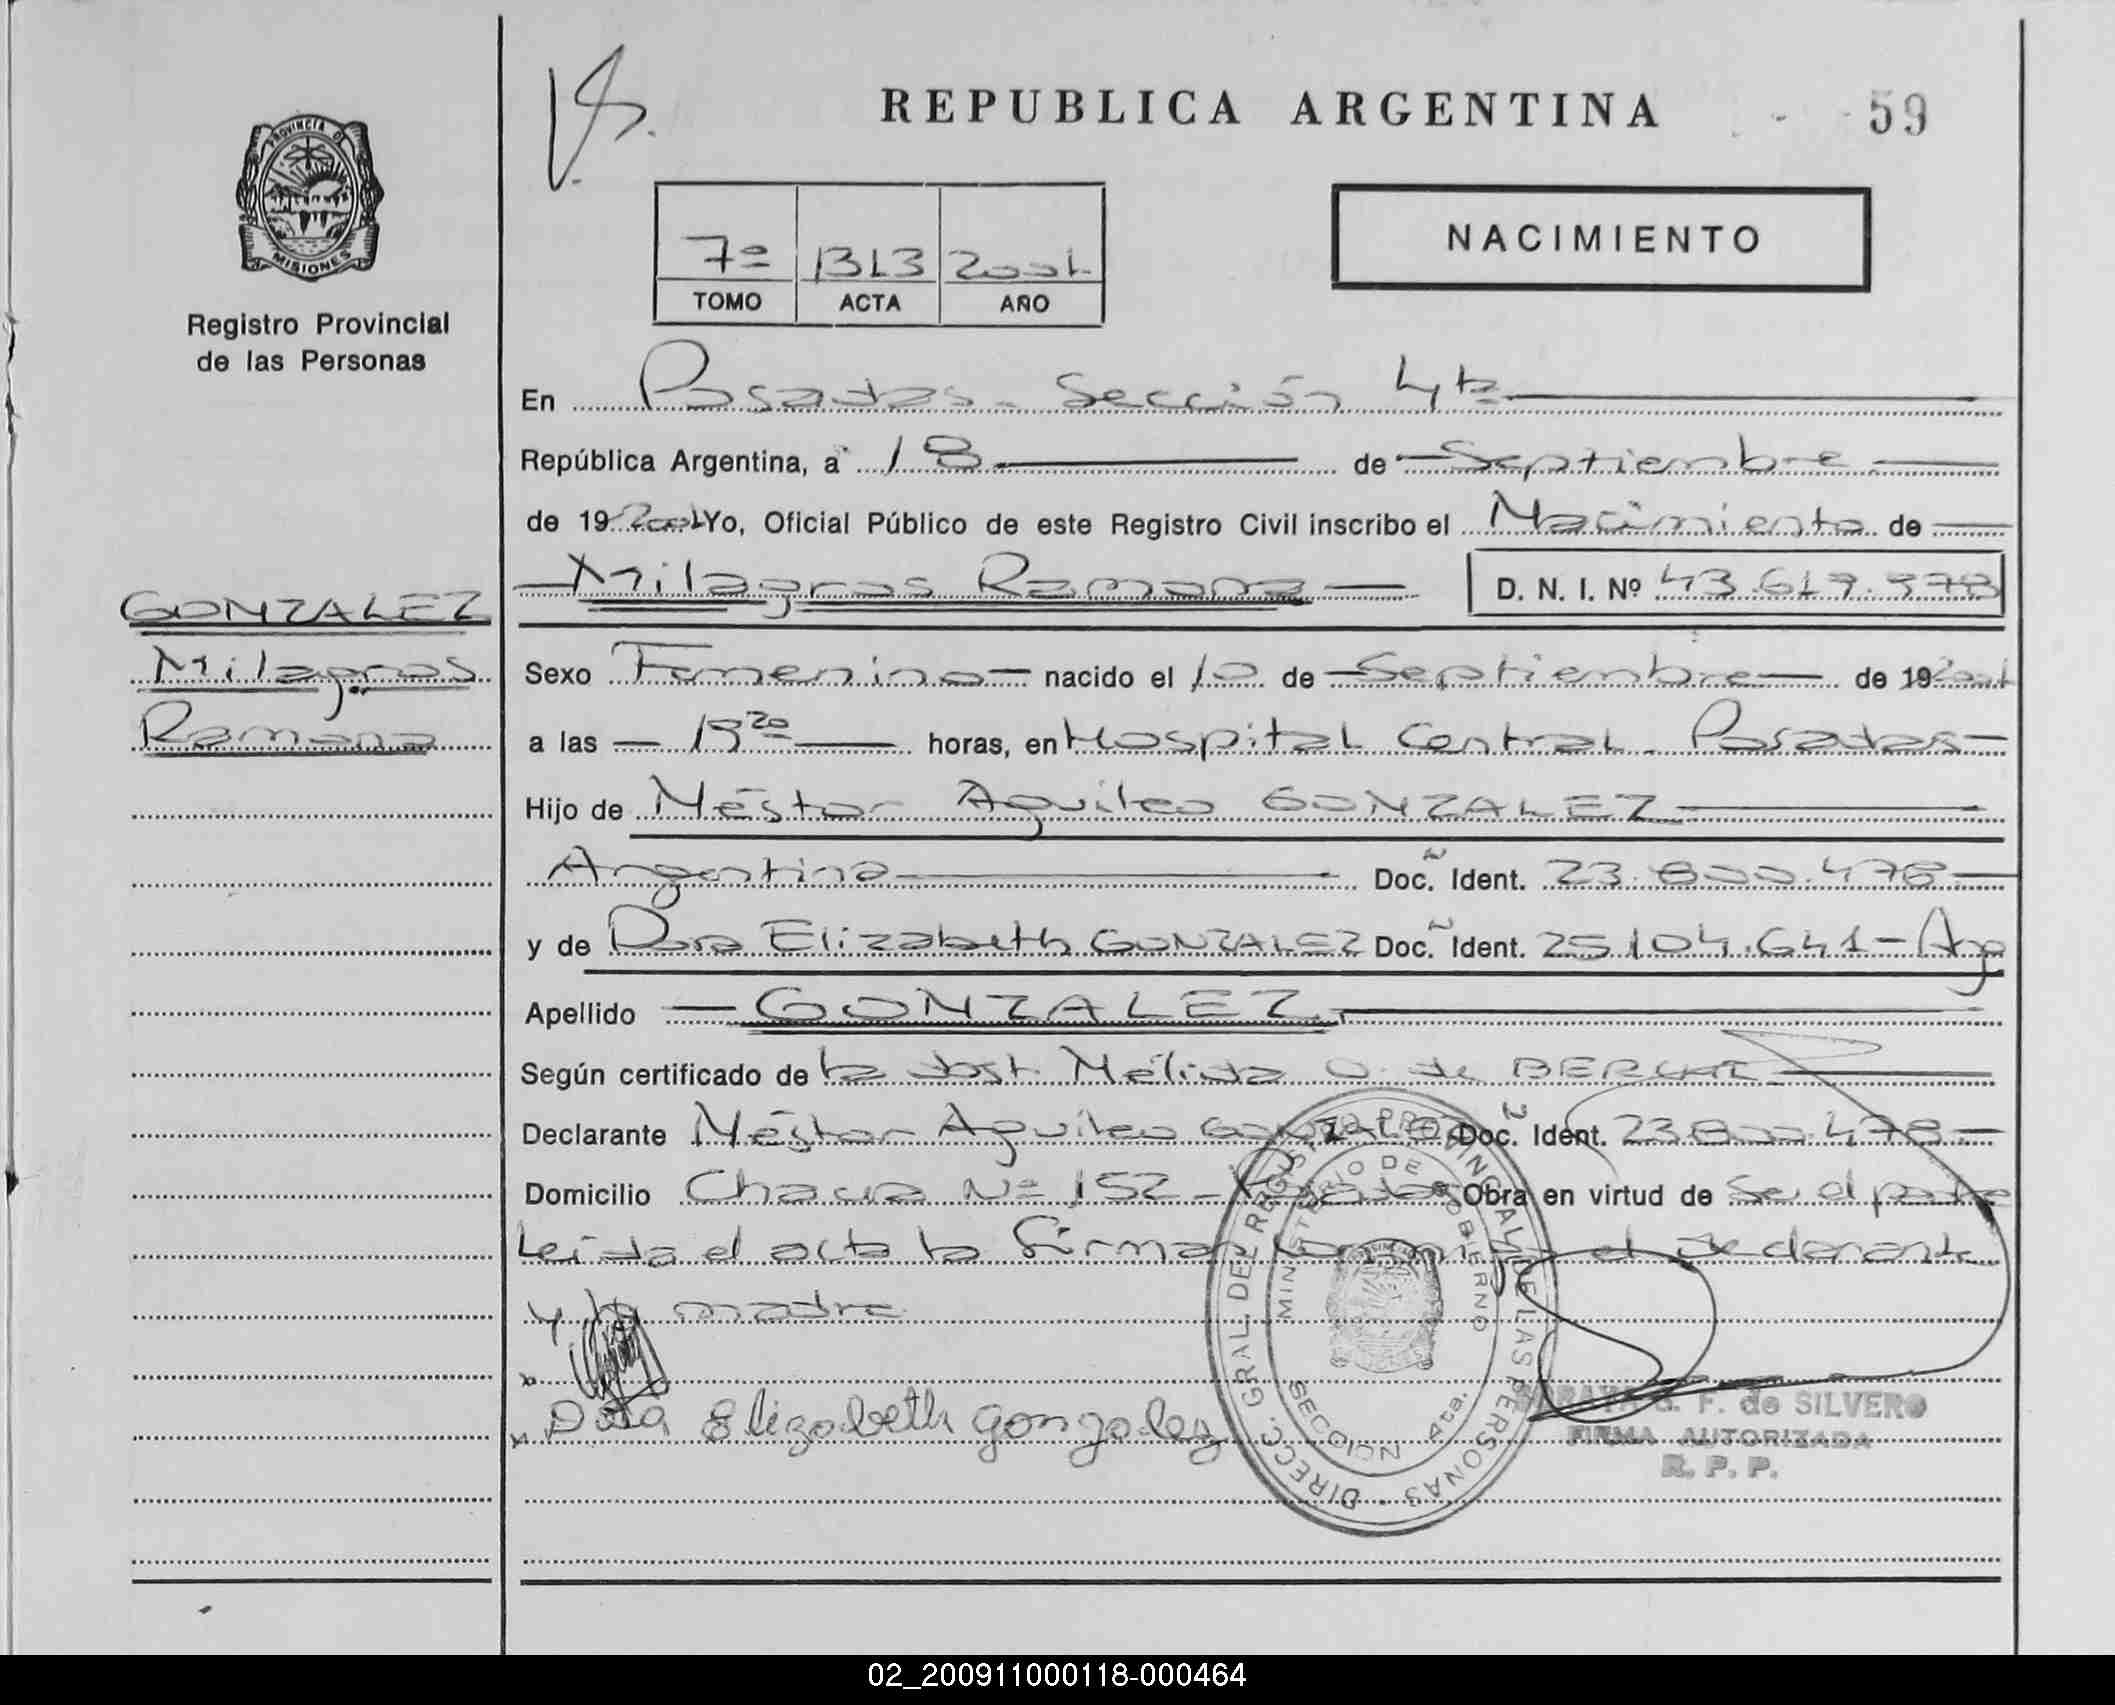 REPUBLICA ARGENTINA
59
PROVINCIA DE
MISIONES
Registro Provincial
de las Personas
7º 1313 2001
TOMO ACTA AÑO
NACIMIENTO
En Posadas - Sección 4ta
República Argentina, a 18 de Septiembre
de 19 2001 Yo, Oficial Público de este Registro Civil inscribo el Nacimiento de
Milagros Ramona D. N. I. Nº 43.617.378
GONZALEZ
Milagros
Ramona
Sexo Femenino nacido el 10 de Septiembre de 19 2001
a las horas, en Hospital Central Posadas
Hijo de Néstor Aquileo GONZALEZ
Argentina Doc. Ident. 23.800.478
y de Dora Elizabeth GONZALEZ Doc. Ident. 25.104.641 - Arg
Apellido GONZALEZ
Según certificado de la obst. Nélida O. de
Declarante Néstor Aquileo GONZALEZ Doc. Ident. 23.800.478
Domicilio Nº 152 - Posadas Obra en virtud de Ser el padre
Leída el acta la firman conmigo el declarante
y la madre
Dora Elizabeth Gonzalez
DIRECC. GRAL. DEL REGISTRO PROVINCIAL DE LAS PERSONAS
MINISTERIO DE GOBIERNO
SECCION 4ta.
S. F. de SILVERO
FIRMA AUTORIZADA
R. P. P.
02_200911000118-000464